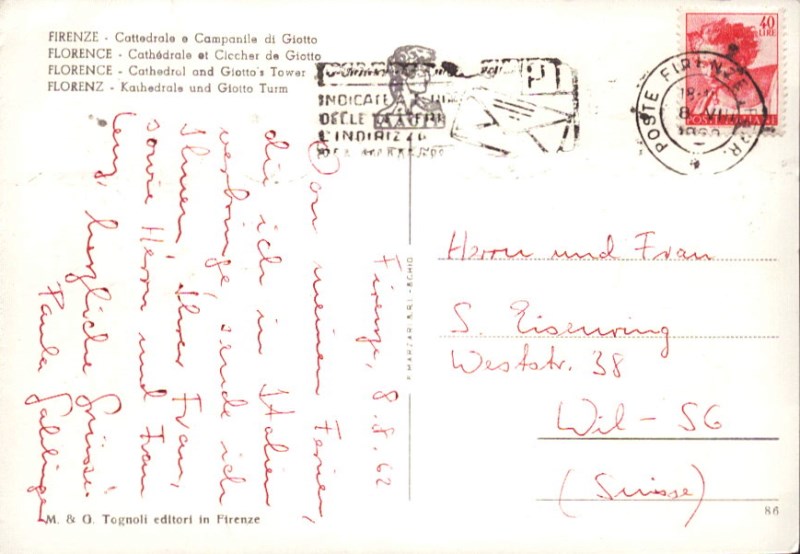 FIRENZE - Cattedrale e Campanile di Giotto
FLORENCE - Cathédrale et Ciccher de Giotto
FLORENCE - Cathedral and Giotto's Tower
FLORENZ - Kathedrale und Giotto Turm
INDICATE A
DELLE LETTERE
L'INDIRIZZO
40
LIRE
POSTE ITALIANE
POSTE FIRENZE
Firenze, 8.8.62
Von meinen Ferien,
die ich in Italien
verbringe, sende ich
Ihnen, Ihrer Frau,
sowie Herrn und Frau
Lenz, herzliche Grüsse.
Paula
MARZARI S.R.L. - SCHIO
Herrn und Frau
S. Eisenring
Weststr. 38
Wil - SG
(Suisse)
M. & G. Tognoli editori in Firenze
86